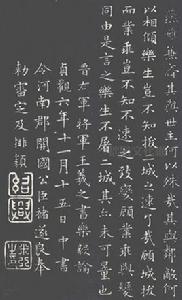 燕并兼者其與世主何以殊哉其與鄰敵何
以相傾樂生豈不知拔二城之速了哉顧城拔
而業乖豈不知不速之致變顧業乖與變
同由是言之樂生不屠二城其亦未可量也
晉右軍將軍王羲之書樂毅論
貞觀六年十一月十五日中書
令河南郡開國公臣褚遂良奉
勅審定及排類